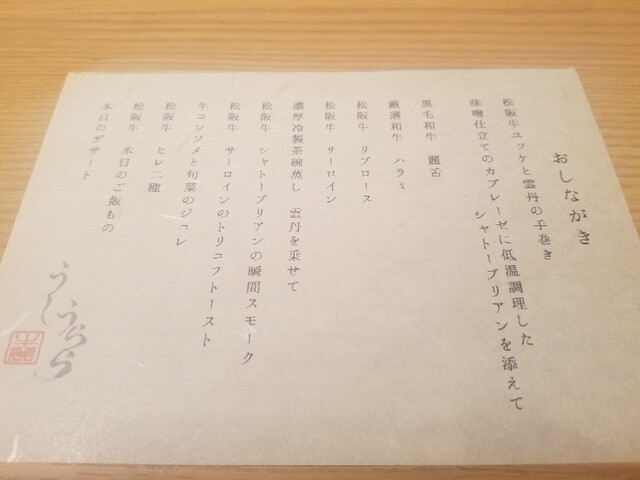 おしながき
松阪牛ユッケと雲丹の手巻き
味噌仕立てのカプレーゼに低温調理した
シャトーブリアンを添えて
黒毛和牛 麗舌
厳選和牛 ハラミ
松阪牛 リブロース
松阪牛 サーロイン
濃厚冷製茶碗蒸し 雲丹を乗せて
松阪牛 シャトーブリアンの瞬間スモーク
松阪牛 サーロインのトリュフトースト
牛コンソメと旬菜のジュレ
松阪牛 ヒレ二種
松阪牛 本日のご飯もの
本日のデザート
うし
うらら